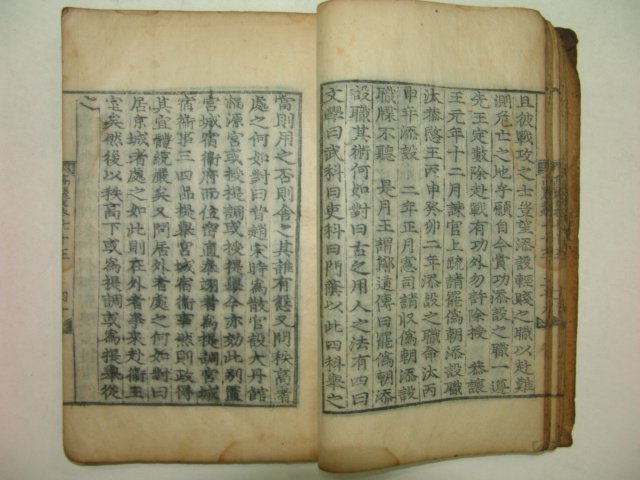 且彼戰攻之士豈望添設輕賤之職以赴難
測危亡之地乎願自今賞功添設之職一遵
先王定數除赴戰有功外勿許除授 恭讓
王元年十二月諫官上疏請罷僞朝添設職
汰恭愍王丙申癸卯二年添設之職命汰丙
申年添設 二年正月憲司請收僞朝添設
職牒不聽 是月王謂鄭道傳曰罷僞朝添
設職其術何如對曰古之用人之法有四曰
文學曰武科曰吏科曰門蔭以此四科舉之
當則用之否則舍之其誰有怨又問秩高者
處之何如對曰昔趙宋時爲散官設大丹館
福源宮或授提調或授提舉今亦効此別置
宮城宿衛府而位密直奉翊者爲提調宮城
宿衛事三四品提舉宮城宿衛事然則政得
其宜體統嚴矣又問居外者處之何如對曰
居京城者處之如此則在外者爭來赴衛王
室矣然後以秩高下或爲提調或爲提舉從
之